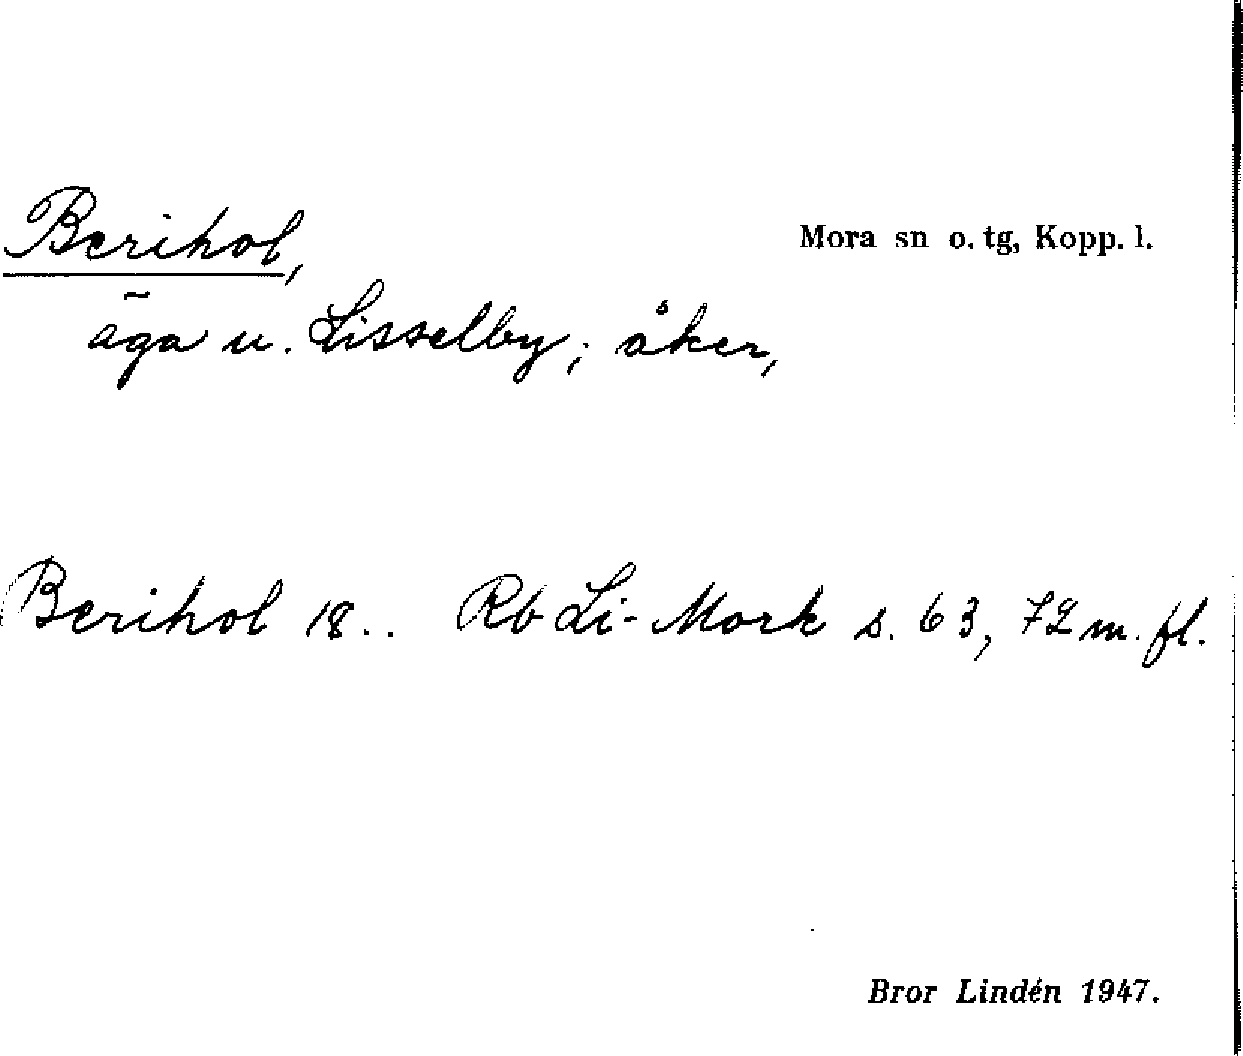 Berihol,
Mora sn o. tg, Kopp. l.
äga u. Lisselby; åker,
Berihol 18.. Rb Li-Mork s. 63, 72 m. fl.
Bror Lindén 1947.